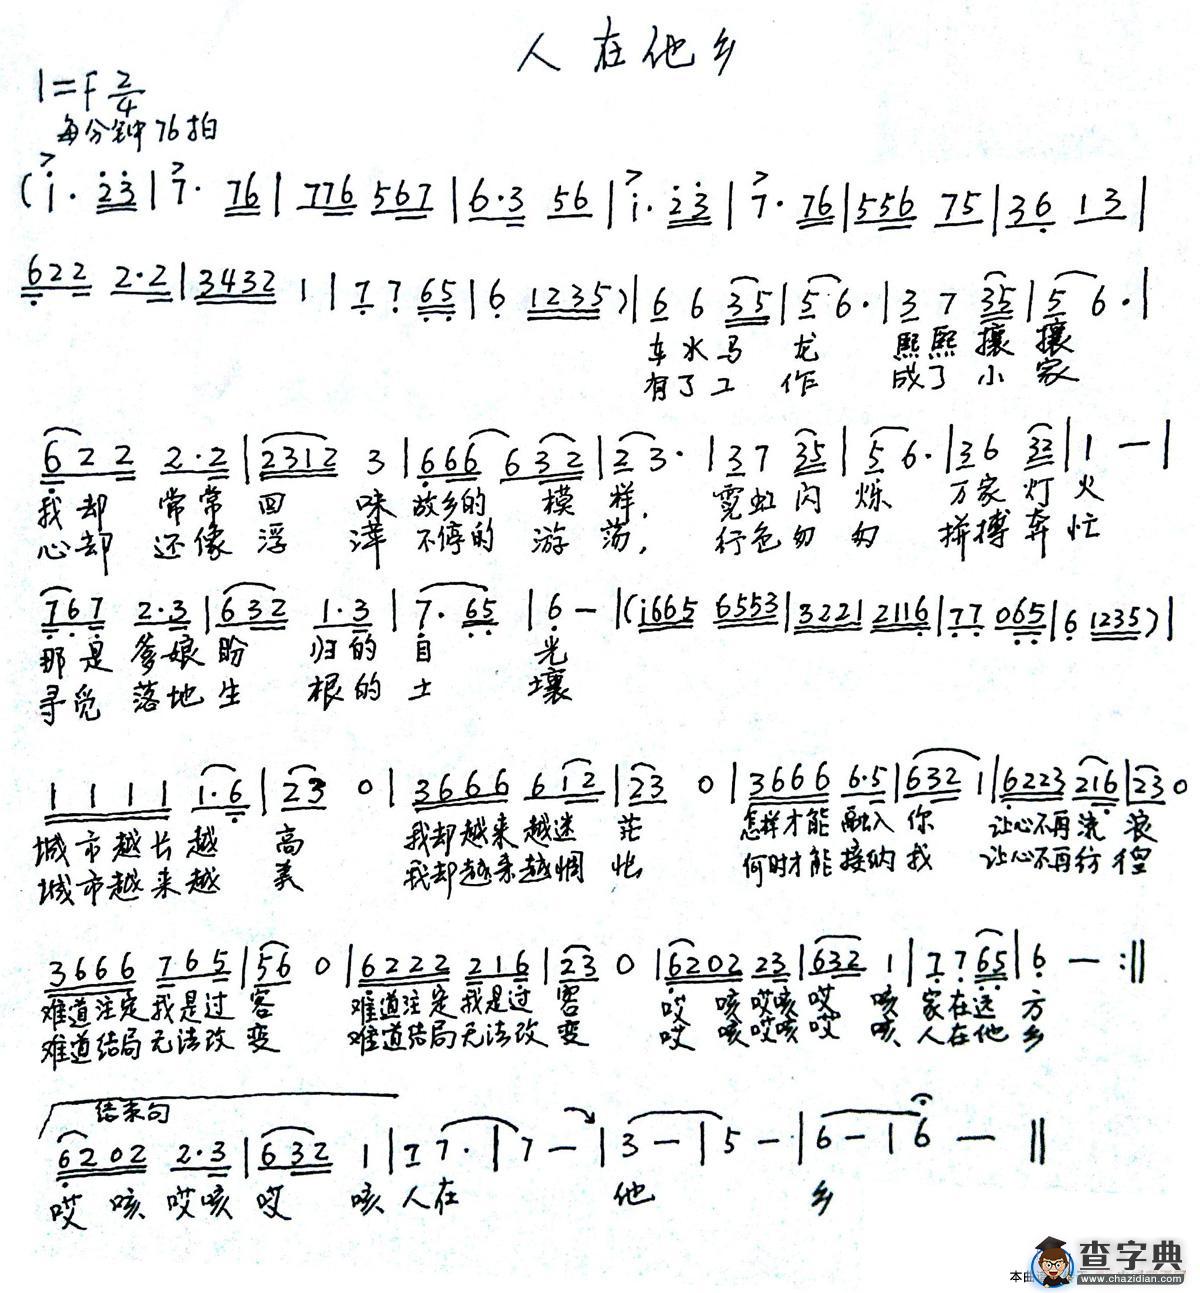 人在他乡
1=F 2/4
每分钟76拍
(i· 23 | 7· 76 | 776 567 | 6·3 56 | i· 23 | 7· 76 | 556 75 | 36 13 |
622 2·2 | 3432 1 | 77 65 | 6 1235) | 66 35 | 56· | 37 35 | 56· |
车水马龙 熙熙攘攘
有了工作 成了小家
622 2·2 | 2312 3 | 666 632 | 23· | 37 35 | 56· | 36 32 | 1 — |
我却常常回味故乡的模样， 霓虹闪烁 万家灯火
心却还像浮萍不停的游荡， 行色匆匆 拼搏奔忙
767 2·3 | 632 1·3 | 7· 65 | 6 — | (i665 6553 | 3221 2116 | 77 065 | 6 1235) |
那是爹娘盼归的目光
寻觅落地生根的土壤
1111 1·6 | 23 0 | 3666 612 | 23 0 | 3666 6·5 | 632 1 | 6223 216 | 23 0
城市越长越高 我却越来越迷茫 怎样才能融入你 让心不再流浪
城市越来越美 我却越来越惆怅 何时才能接纳我 让心不再彷徨
3666 765 | 56 0 | 6222 216 | 23 0 | 6202 23 | 632 1 | 77 65 | 6 — :||
难道注定我是过客 难道注定我是过客 哎咳哎咳哎咳家在远方
难道结局无法改变 难道结局无法改变 哎咳哎咳哎咳人在他乡
结束句
6202 2·3 | 632 1 | 1 7· | 7 — | 3 — | 5 — | 6 — | 6 — ||
哎咳哎咳哎咳人在他乡
本曲
查字典
www.chazidian.com